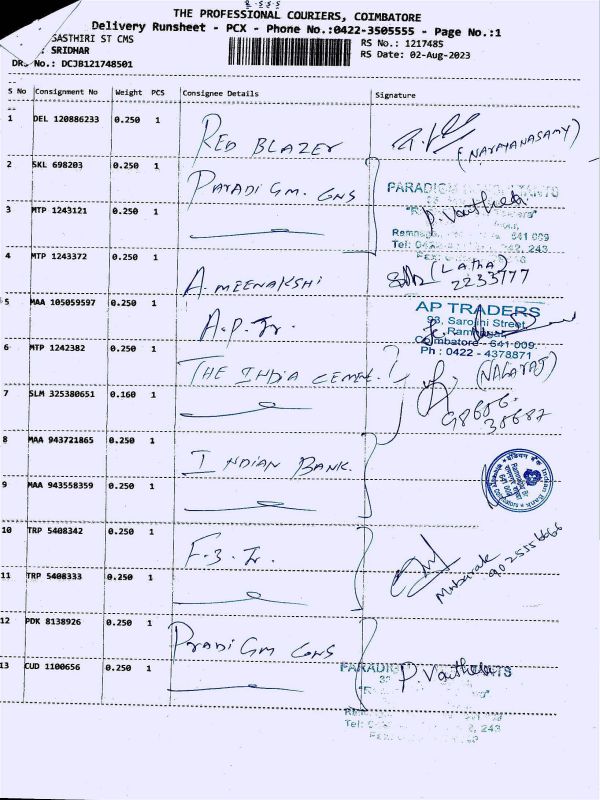 THE PROFESSIONAL COURIERS, COIMBATORE
Delivery Runsheet - PCX - Phone No.:0422-3505555 - Page No.:1
SASTHIRI ST CMS
RS No.: 1217485
: SRIDHAR
RS Date: 02-Aug-2023
DRS No.: DCJB121748501
S No Consignment No Weight PCS Consignee Details Signature
1 DEL 120886233 0.250 1
RED BLAZER
(NARAYANASAMY)
2 SKL 698203 0.250 1
PARADIGM. CONS
PARADIGM
P. Vanitha
3 MTP 1243121 0.250 1
Ramnagar 641 009
Tel: 0422 243
4 MTP 1243372 0.250 1
A. MEENAKSHI
(LATHA)
2233777
5 MAA 105059597 0.250 1
A.P. Tr.
AP TRADERS
93, Sarojini Street,
Ramnagar
Coimbatore - 641 009.
Ph : 0422 - 4378871
6 MTP 1242382 0.250 1
THE INDIA CEMEN.
(NAGARAJ)
7 SLM 325380651 0.160 1
98656.
35687
8 MAA 943721865 0.250 1
INDIAN BANK.
Indian Bank
9 MAA 943558359 0.250 1
10 TRP 5408342 0.250 1
F.3. Tr.
Mubarak
11 TRP 5408333 0.250 1
12 PDK 8138926 0.250 1
PARADIGM CONS
13 CUD 1100656 0.250 1
PARADIGM
P. Vanitha
Tel: 243